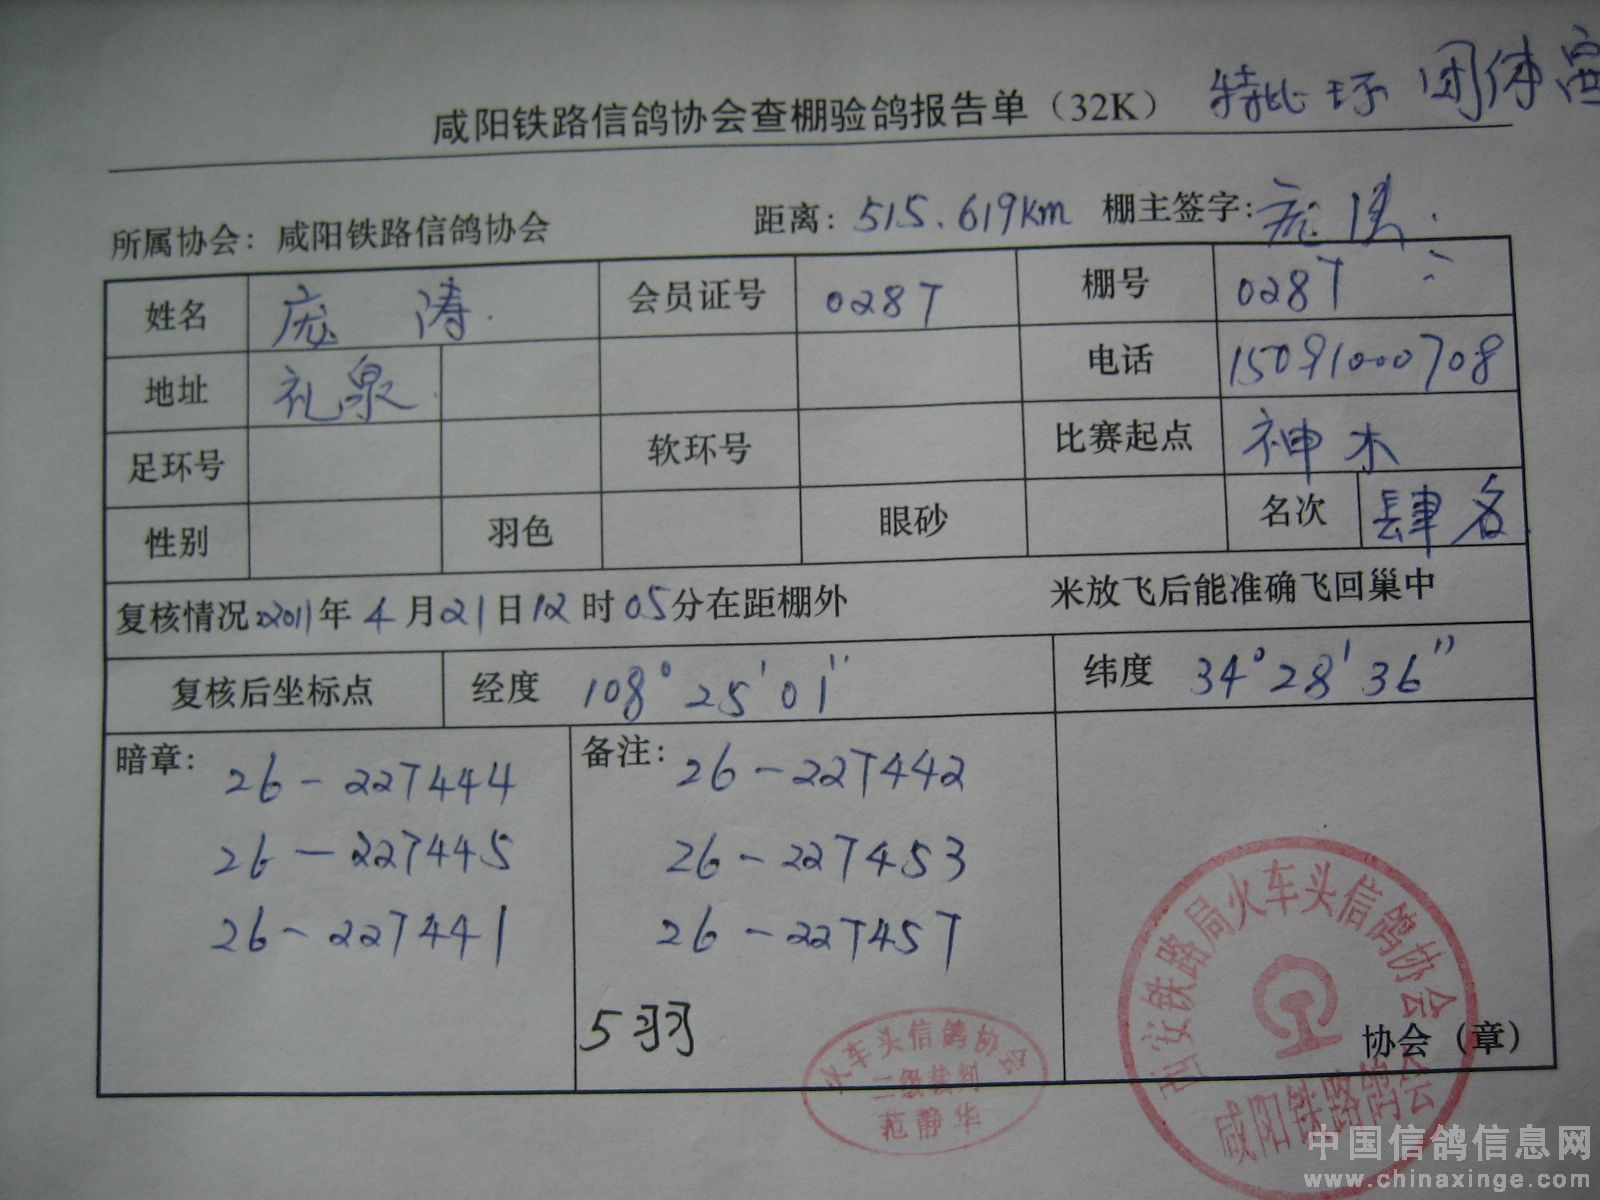 特比环 团体
咸阳铁路信鸽协会查棚验鸽报告单（32K）
所属协会：咸阳铁路信鸽协会 距离：515.619km 棚主签字：庞涛
姓名 庞涛 会员证号 0287 棚号 0287
地址 礼泉 电话 15091000708
足环号 软环号 比赛起点 神木
性别 羽色 眼砂 名次 肆名
复核情况 2011年4月21日12时05分在距棚外 米放飞后能准确飞回巢中
复核后坐标点 经度 108°25'01" 纬度 34°28'36"
暗章： 备注：
26-227444 26-227442
26-227445 26-227453
26-227441 26-227457
5羽
协会（章）
火车头信鸽协会
二级裁判
范静华
西安铁路局火车头信鸽协会
咸阳铁路鸽会
中国信鸽信息网
www.chinaxinge.com